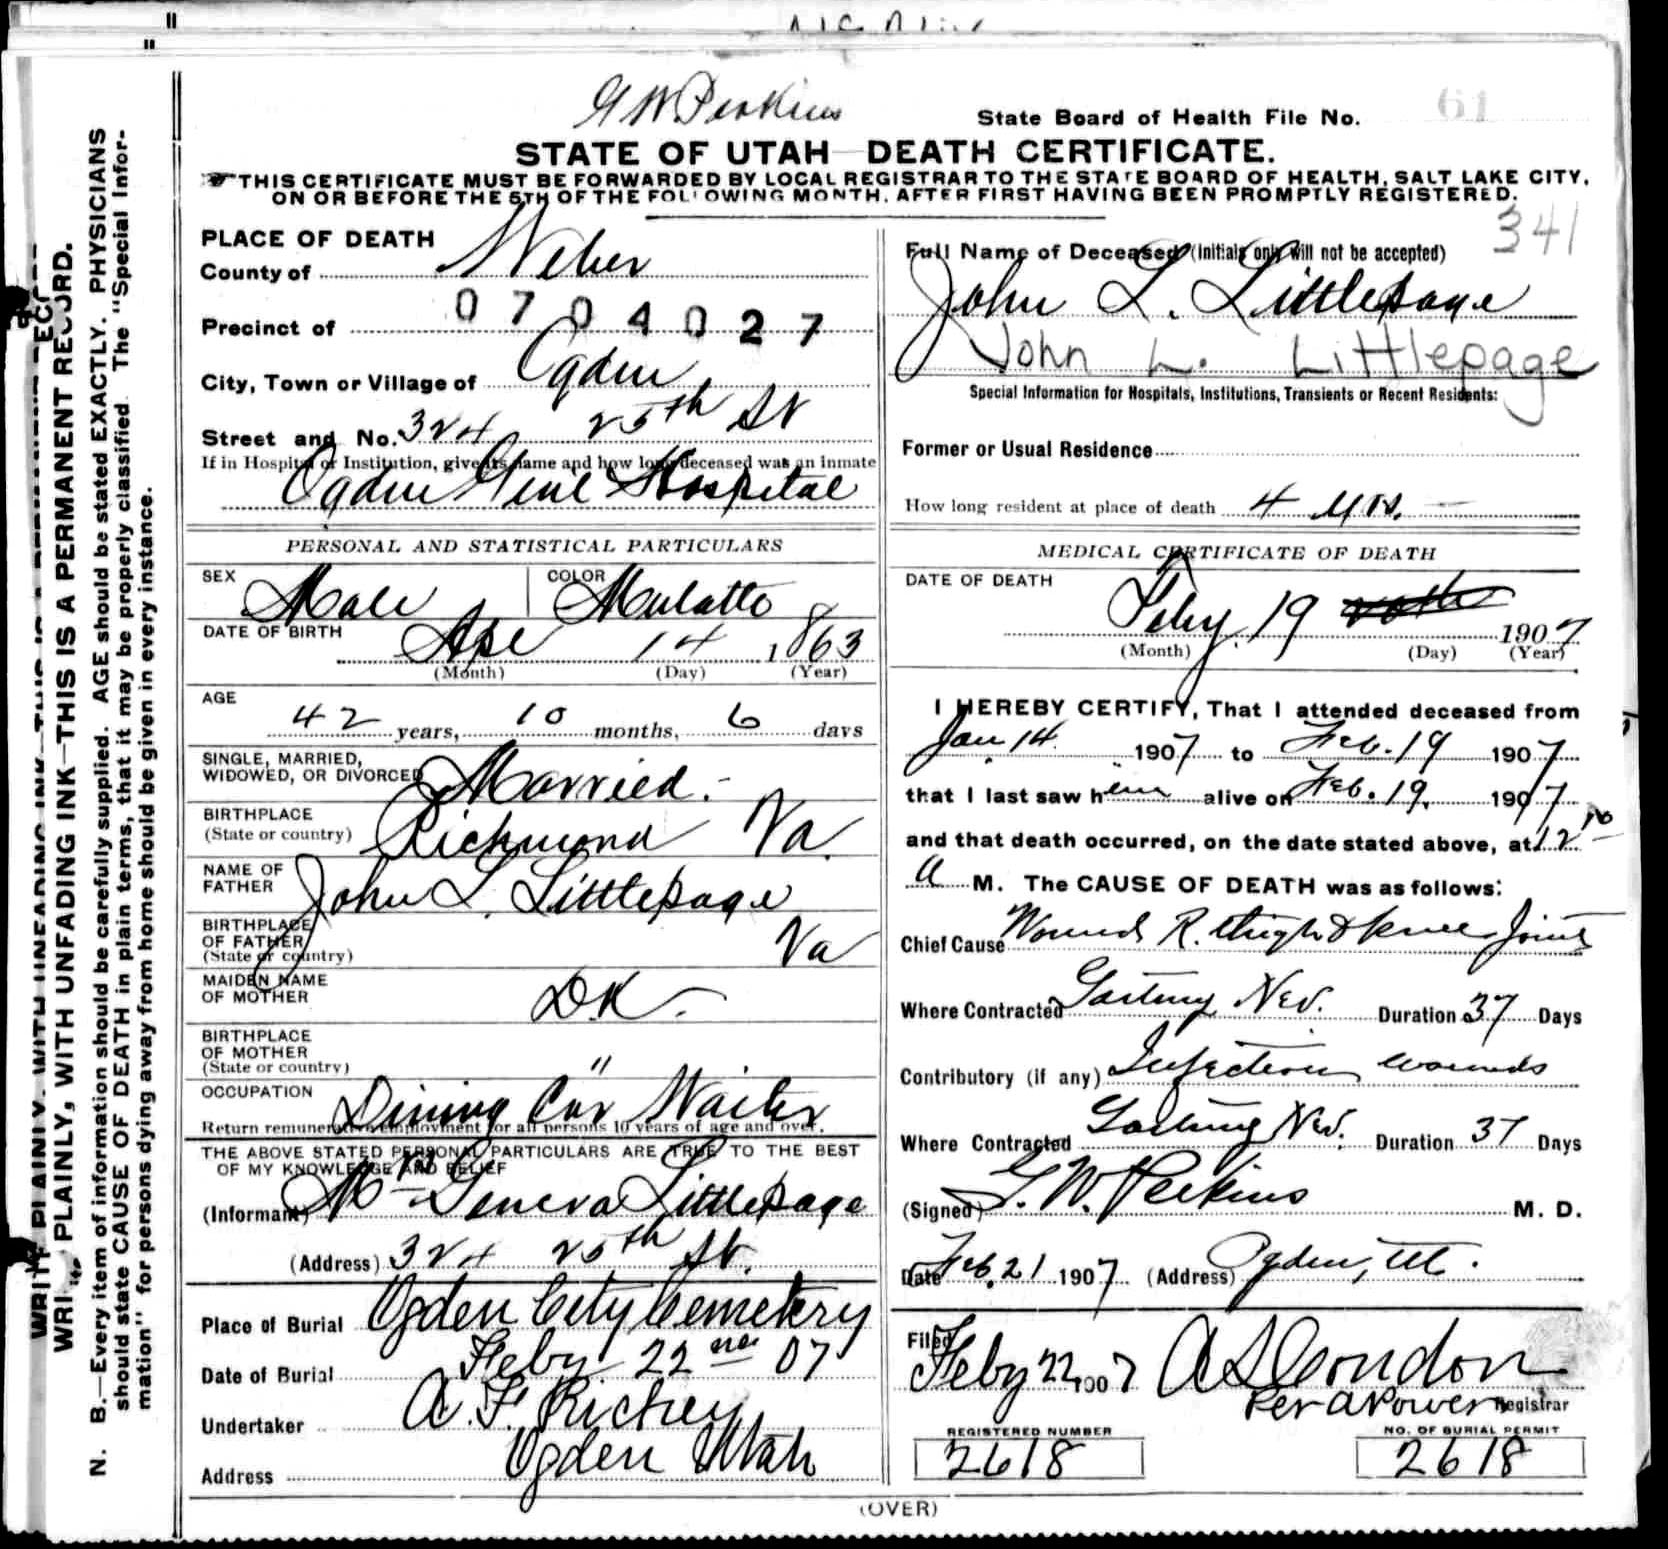 G W Perkins
State Board of Health File No. 61
STATE OF UTAH—DEATH CERTIFICATE.
THIS CERTIFICATE MUST BE FORWARDED BY LOCAL REGISTRAR TO THE STATE BOARD OF HEALTH, SALT LAKE CITY,
ON OR BEFORE THE 5TH OF THE FOLLOWING MONTH, AFTER FIRST HAVING BEEN PROMPTLY REGISTERED.
341
WRITE PLAINLY, WITH UNFADING INK—THIS IS A PERMANENT RECORD.
N. B.—Every item of information should be carefully supplied. AGE should be stated EXACTLY. PHYSICIANS
should state CAUSE OF DEATH in plain terms, that it may be properly classified. The "Special Infor-
mation" for persons dying away from home should be given in every instance.
PLACE OF DEATH
County of Weber
Precinct of 0704027
City, Town or Village of Ogden
Street and No. 324 25th St
If in Hospital or Institution, give its name and how long deceased was an inmate
Ogden Genl Hospital
PERSONAL AND STATISTICAL PARTICULARS
SEX Male COLOR Mulatto
DATE OF BIRTH Apl 14 1863
(Month) (Day) (Year)
AGE
42 years, 10 months, 6 days
SINGLE, MARRIED,
WIDOWED, OR DIVORCED Married.
BIRTHPLACE
(State or country) Richmond Va.
NAME OF
FATHER John L. Littlepage
BIRTHPLACE
OF FATHER
(State or country) Va
MAIDEN NAME
OF MOTHER D.K.
BIRTHPLACE
OF MOTHER
(State or country) "
OCCUPATION Dining Car Waiter
Return remunerative employment for all persons 10 years of age and over.
THE ABOVE STATED PERSONAL PARTICULARS ARE TRUE TO THE BEST
OF MY KNOWLEDGE AND BELIEF
(Informant) Mrs Geneva Littlepage
(Address) 324 25th St.
Place of Burial Ogden City Cemetery
Date of Burial Feby 22nd 07
Undertaker A. F. Richey
Address Ogden Utah
Full Name of Deceased (Initials only will not be accepted)
John L. Littlepage
John L. Littlepage
Special Information for Hospitals, Institutions, Transients or Recent Residents:
Former or Usual Residence
How long resident at place of death 4 yrs.
MEDICAL CERTIFICATE OF DEATH
DATE OF DEATH
Feby. 19 1907
(Month) (Day) (Year)
I HEREBY CERTIFY, That I attended deceased from
Jan 14 1907 to Feb. 19 1907
that I last saw him alive on Feb. 19. 1907
and that death occurred, on the date stated above, at 12 10
A M. The CAUSE OF DEATH was as follows:
Chief Cause Wounds R. thigh & knee Joint
Where Contracted Nev. Duration 37 Days
Contributory (if any) Infection wounds
Where Contracted Nev. Duration 37 Days
(Signed) G. W. Perkins M. D.
Date Feb. 21 1907 (Address) Ogden, Ut.
Filed
Feby 22 1907 A S Condon
Per A Power Registrar
REGISTERED NUMBER
2618
NO. OF BURIAL PERMIT
2618
(OVER)